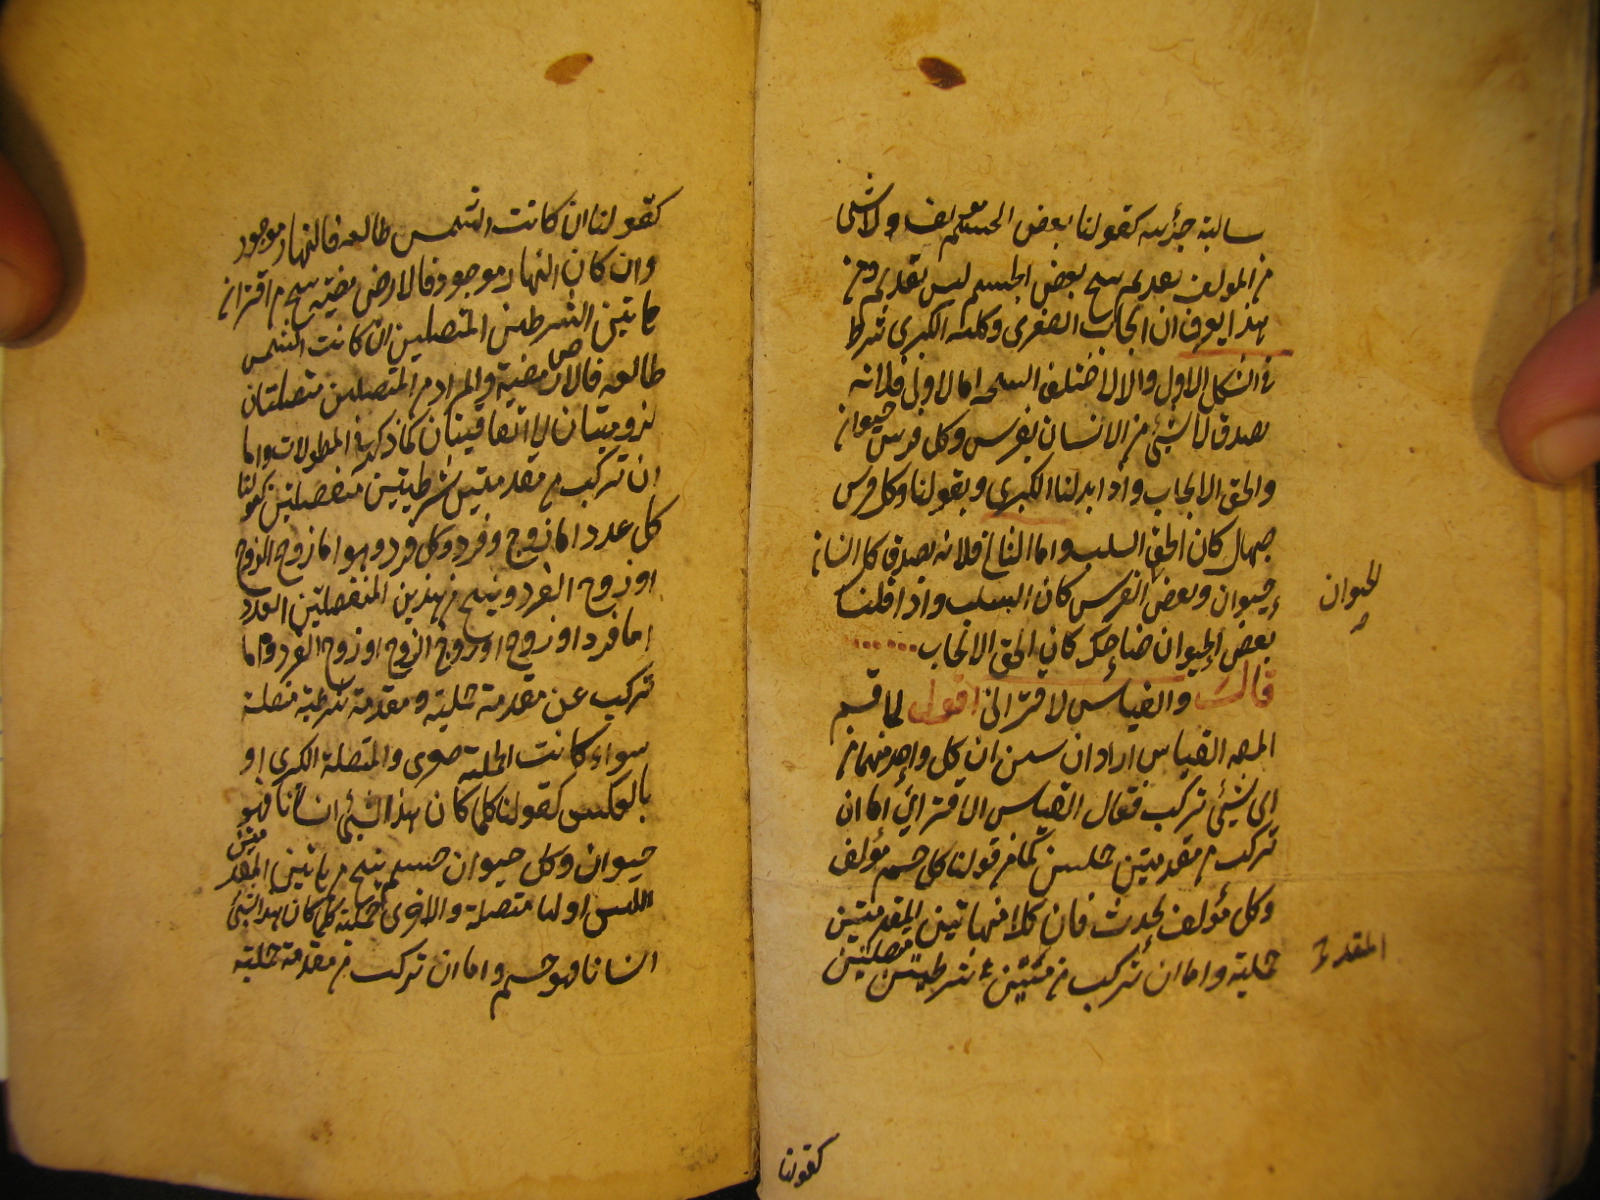 سالبة جزئية كقولنا بعض الجسم مؤلف ولا شئ
من المولف بقديم ينتج بعض الجسم ليس بقديم ومن
هذا يعرف ان ايجاب الصغرى وكلية الكبرى شرط
في الشكل الاول والا لاختلف النتيجة اما الاول فلانه
يصدق لا شئ من الانسان بفرس وكل فرس حيوان
والحق الايجاب واذا بدلنا الكبرى وبقولنا وكل فرس
صهال كان الحق السلب واما الثاني فلانه يصدق كل انسان
حيوان وبعض الفرس كان السلب واذا قلنا
الحيوان
بعض الحيوان ضاحك كان الحق الايجاب
قال والقياس الاقترانى اقول لما قسم
المص القياس اراد ان يبين ان كل واحد منهما من
اى شئ تركب فقال القياس الاقتراني اما ان
تركب من مقدمتين حمليتين كما من قولنا كل جسم مؤلف
وكل مؤلف محدث فان كلا منهاتين المقدمتين
حملية واما ان تركب من شرطيتين متصلتين
كقولنا
كقولنا ان كانت الشمس طالعه فالنهار موجود
وان كان النهار موجود فالارض مضيئه ينتج من اقتران
هاتين الشرطيتين المتصلتين ان كانت الشمس
طالعه فالارض مضية والمراد من المتصلتين متصلتان
لزوميتان لا اتفاقيتان كما ذكر في المطولات واما
ان تركب من مقدمتين شرطيتين منفصلتين كقولنا
كل عدد اما زوج وفرد وكل فرد وهو اما زوج الزوج
او زوج الفرد وينتج من هذين المنفصلتين العدد
اما فرد او زوج او زوج الزوج او زوج الفرد واما
تركب عن مقدمة حملية ومقدمة شرطية متصلة
سواء كانت الحملية صغرى والمتصلة الكبرى او
بالعكس كقولنا كلما كان هذا الشئ انسانا فهو
حيوان وكل حيوان جسم ينتج من هاتين المقدمتين
اللتين اولها متصلة والاخرى حملية كلما كان هذا الشئ
انسانا فهو جسم واما ان تركب من مقدمة حملية